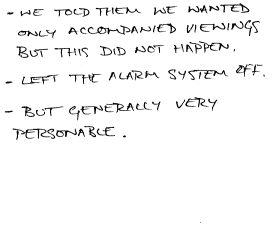 - WE TOLD THEM WE WANTED
ONLY ACCOMPANIED VIEWINGS
BUT THIS DID NOT HAPPEN.
- LEFT THE ALARM SYSTEM OFF.
- BUT GENERALLY VERY
PERSONABLE.